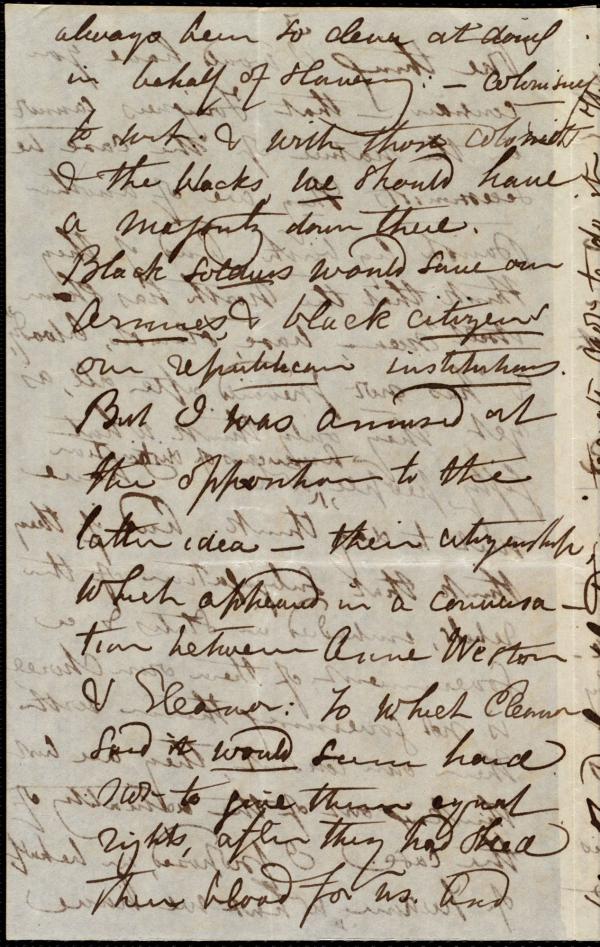 always been so clever at doing
in behalf of slavery: — colonising
to wit. & with those colonists
& the blacks, we should have
a majority down there.
Black soldiers would save our
Armies, & black citizens
our republican institutions.
But I was amused at
the opposition to the
latter idea — their citizenship
which appeared in a conversa-
tion between Anne Weston
& Eleanor: to which Eleanor
said it would seem hard
not to give them equal
rights, after they had shed
their blood for us. And